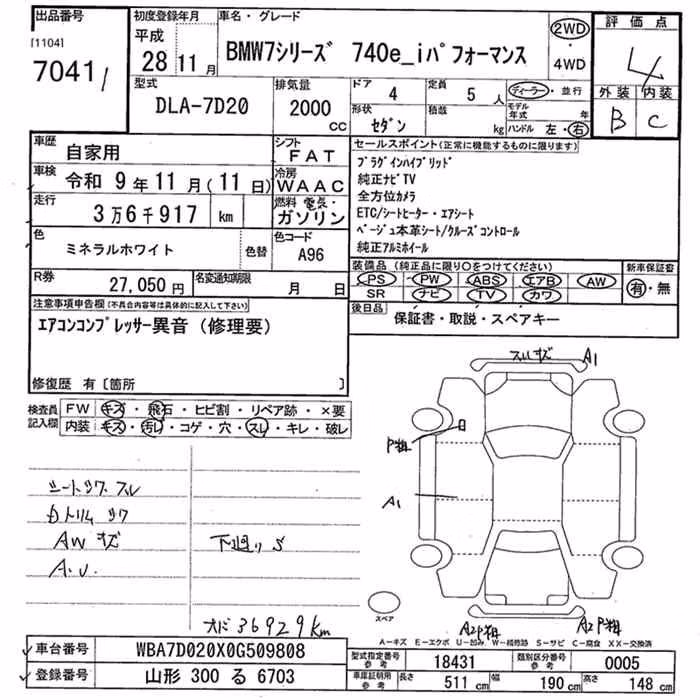 出品番号 初度登録年月 車名・グレード 2WD 評価点
[1104] 平成 BMW7シリーズ 740e_iパフォーマンス ・
7041/ 28 11月 4WD 4
型式 排気量 ドア 4 定員 5人 ディーラー・並行 外装 内装
DLA-7D20 2000cc 形状 セダン 積載 kg モデル年式 年 B C
ハンドル 左・右
車歴 自家用 シフト FAT セールスポイント(正常に機能するものに限ります)
車検 令和 9年11月(11日) 冷房 WAAC プラグインハイブリッド
走行 3万6千917 km 燃料 電気・ガソリン 純正ナビTV
全方位カメラ
ETC/シートヒーター・エアシート
ベージュ本革シート/クルーズコントロール
純正アルミホイール
色 ミネラルホワイト 色替 色コード A96
R券 27,050円 名変通知期限 月 日
装備品(純正品に限り○をつけてください) 新車保証書
PS PW ABS エアB AW 有・無
SR ナビ TV カワ
注意事項申告欄(不具合内容等は具体的に記入して下さい) 後日品 保証書・取説・スペアキー
エアコンコンプレッサー異音(修理要)
修復歴 有[箇所 ]
検査員記入欄 FW キズ・飛石・ヒビ割・リペア跡・×要
内装 キズ・汚レ・コゲ・穴・スレ・キレ・破レ
スリキズ A1
P粗
A1
シートシワ スレ
内トリム シワ
AWキズ 下廻りS
A.U.
スペア
メーター36929km
A2P粗 A2P粗
A-キズ E-エクボ U-凹み W-補修跡 S-サビ C-腐食 XX-交換済
車台番号 WBA7D020X0G509808
登録番号 山形 300 る 6703
型式指定番号 参考 18431 類別区分番号 参考 0005
車庫証明用 参考 長さ 511cm 幅 190cm 高さ 148cm